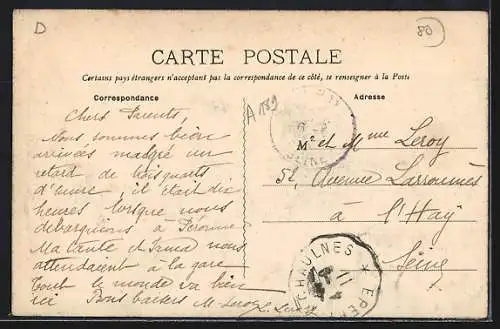 D
80
CARTE POSTALE
Certains pays étrangers n'acceptent pas la correspondance de ce côté, se renseigner à la Poste
Correspondance
Adresse
A 189
Chers Parents,
Nous sommes bien
arrivés malgré un
retard de trois quarts
d'heure, il était dix
heures lorsque nous
débarquions à Péronne
Ma tante et nous
attendaient à la gare
Tout le monde va bien
ici Bons baisers M. Leroy
M^r et M^me Leroy
51, Avenue Larroumès
à l'Haÿ
Seine
SEINE
CHAULNES * EPEHY